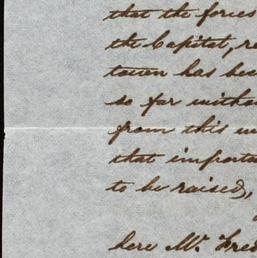 that the forces
the Capital, re
town has bee
so far witho
from this m
that importa
to be raised,
here Mr. Fred